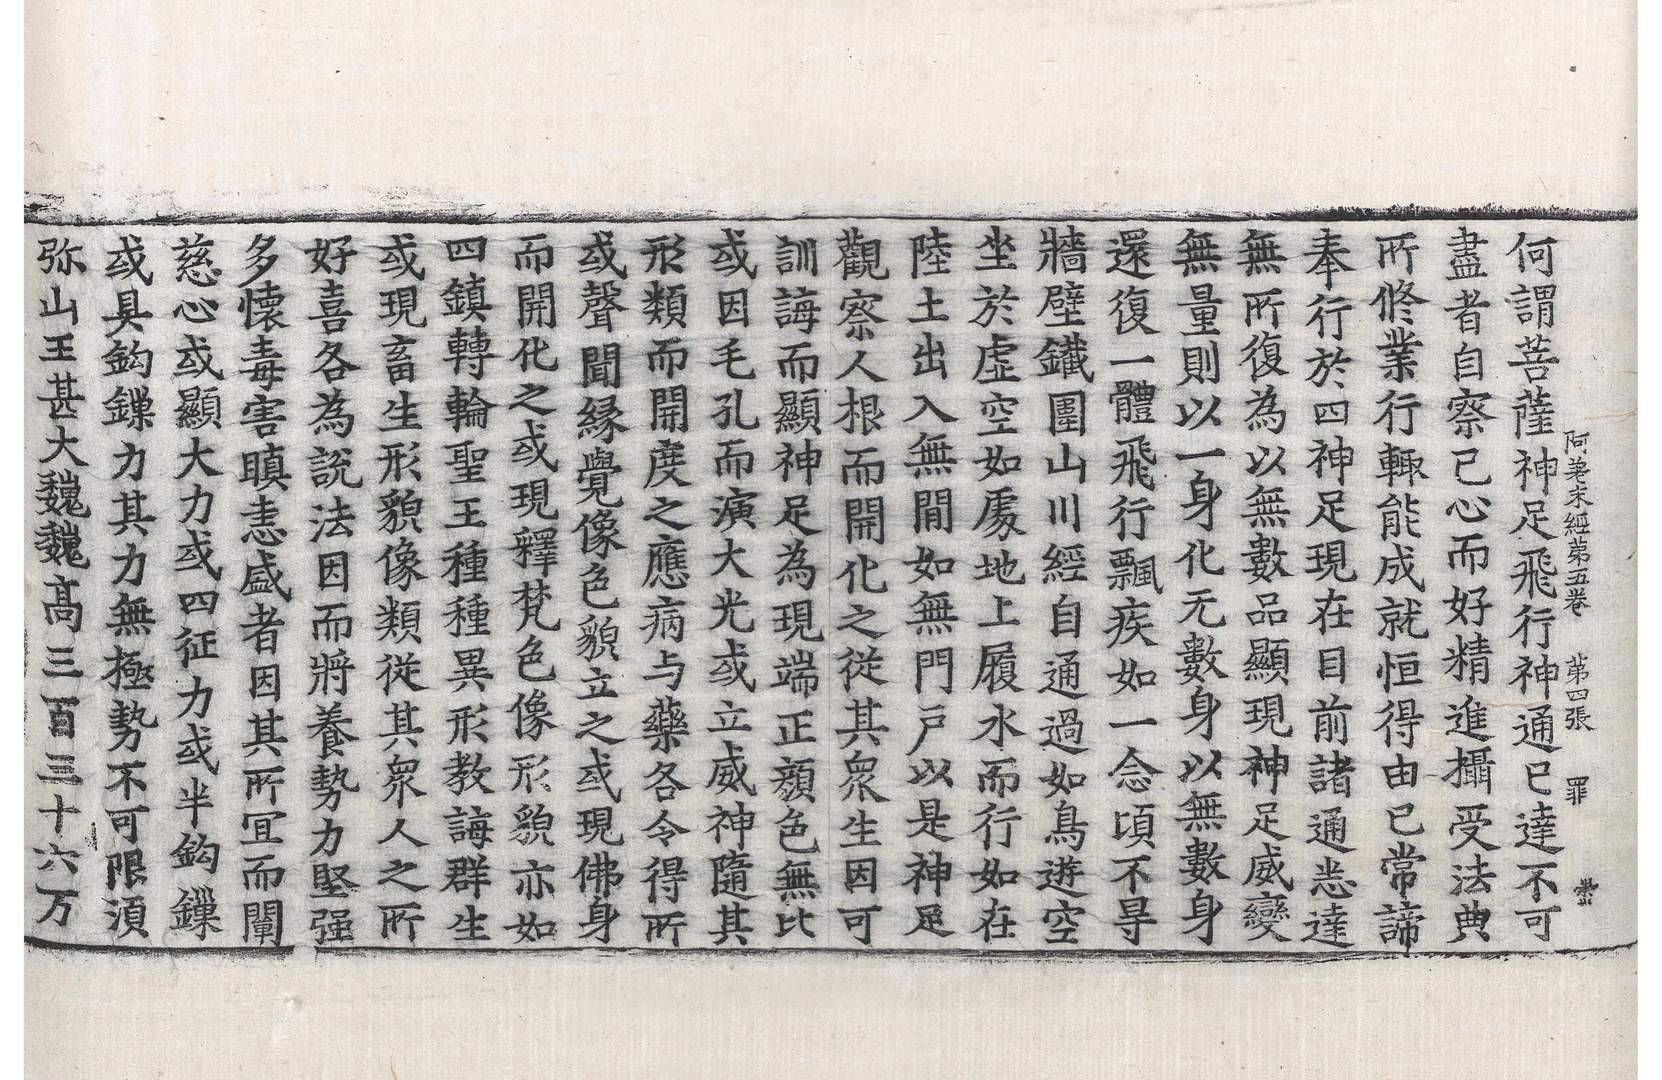 阿差末經第五卷　第四張　罪
何謂菩薩神足飛行神通已達不可
盡者自察己心而好精進攝受法典
所修業行輒能成就恒得由己常諦
奉行於四神足現在目前諸通悉達
無所復為以無數品顯現神足威變
無量則以一身化无數身以無數身
還復一體飛行飄疾如一念頃不㝵
牆壁鐵圍山川經自通過如鳥遊空
坐於虛空如處地上履水而行如在
陸土出入無間如無門戶以是神足
觀察人根而開化之從其眾生因可
訓誨而顯神足為現端正顏色無比
或因毛孔而演大光或立威神隨其
形類而開度之應病与藥各令得所
或聲聞緣覺像色貌立之或現佛身
而開化之或現釋梵色像形貌亦如
四鎮轉輪聖王種種異形教誨群生
或現畜生形貌像類從其眾人之所
好喜各為說法因而將養勢力堅强
多懷毒害瞋恚盛者因其所宜而闡
慈心或顯大力或四征力或半鈎鏁
或具鈎鏁力其力無極勢不可限須
弥山王甚大巍巍高三百三十六万